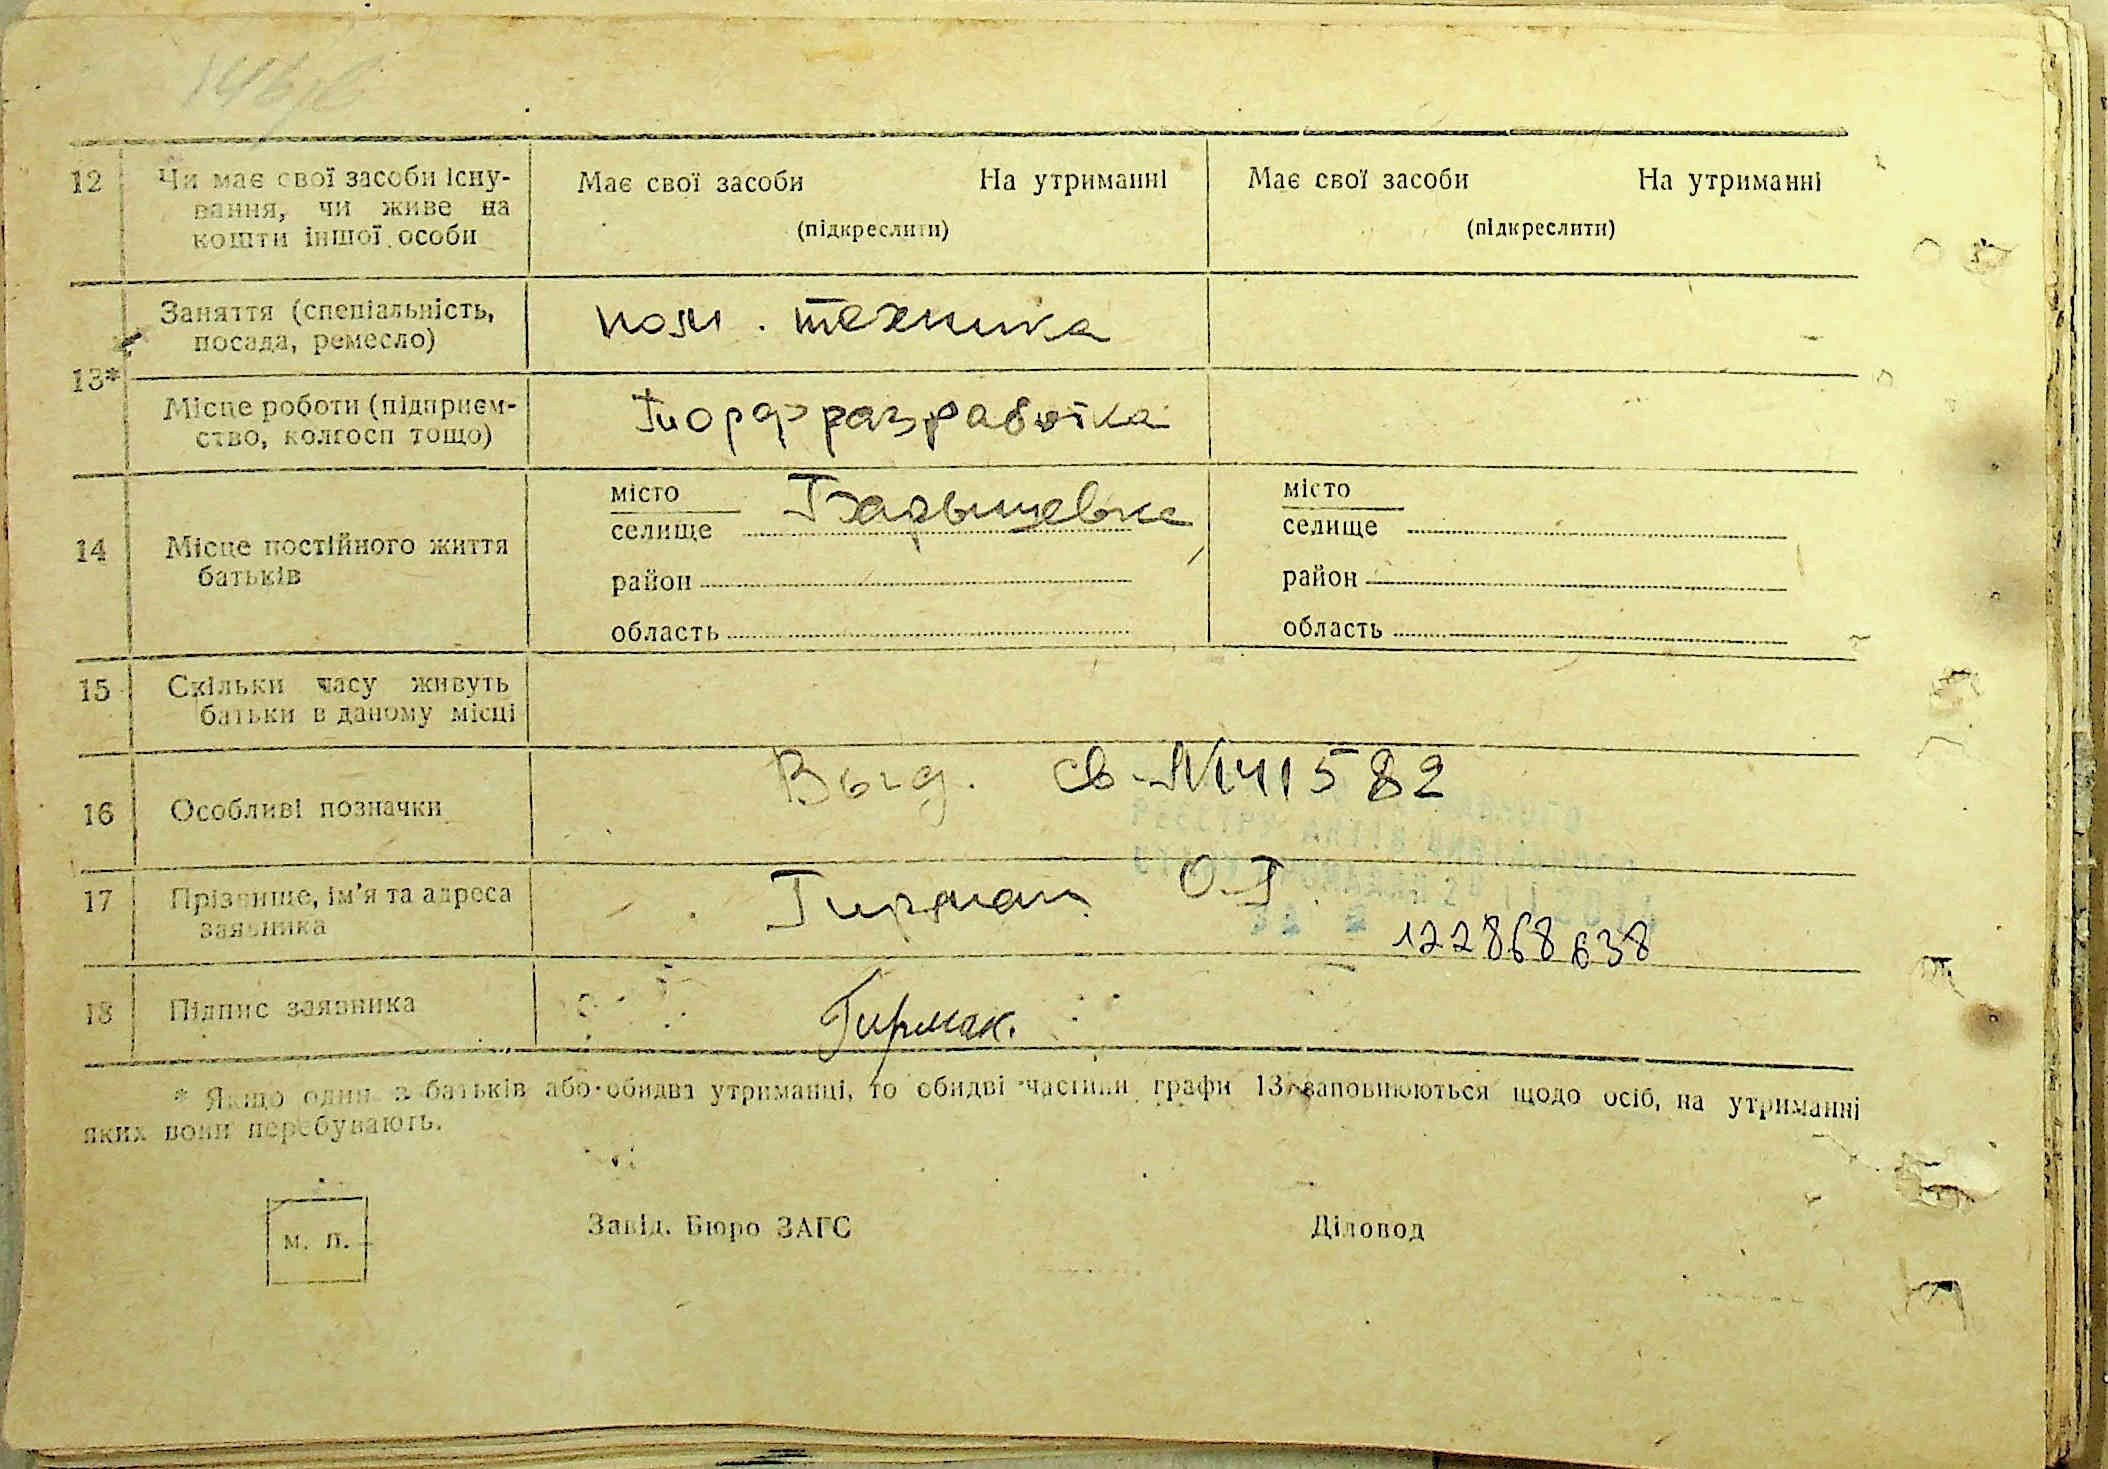 12 Чи має свої засоби існу- Має свої засоби На утриманні Має свої засоби На утриманні
вання, чи живе на
кошти іншої особи (підкреслити) (підкреслити)
Заняття (спеціальність, пом. техника
посада, ремесло)
13*
Місце роботи (підприєм- Торфразработка
ство, колгосп тощо)
місто Барышевка місто
селище селище
14 Місце постійного життя
батьків район район
область область
15 Скільки часу живуть
батьки в даному місці
Выд. св. №
16 Особливі позначки
17 Прізвище, ім'я та адреса Гирман О.
заявника
122868638
18 Підпис заявника
* Якщо один з батьків або обидва утриманці, то обидві частини графи 13 заповнюються щодо осіб, на утриманні
яких вони перебувають.
м. п. Завід. Бюро ЗАГС Діловод